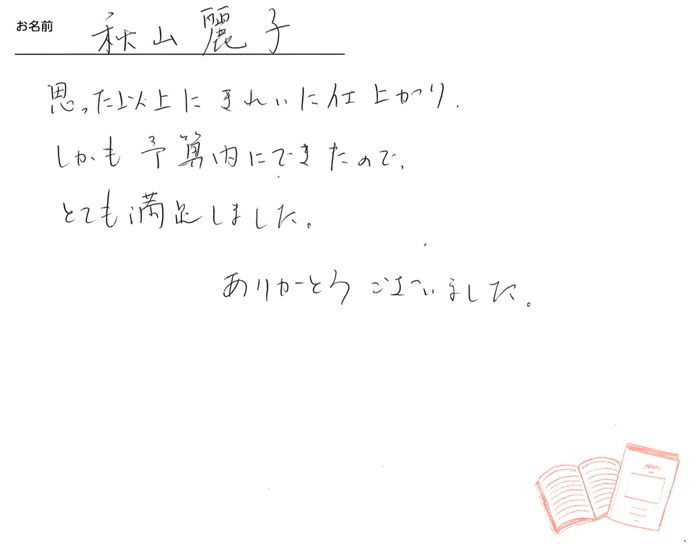 お名前 秋山麗子
思った以上にきれいに仕上がり、
しかも予算内にできたので、
とても満足しました。
ありがとうございました。